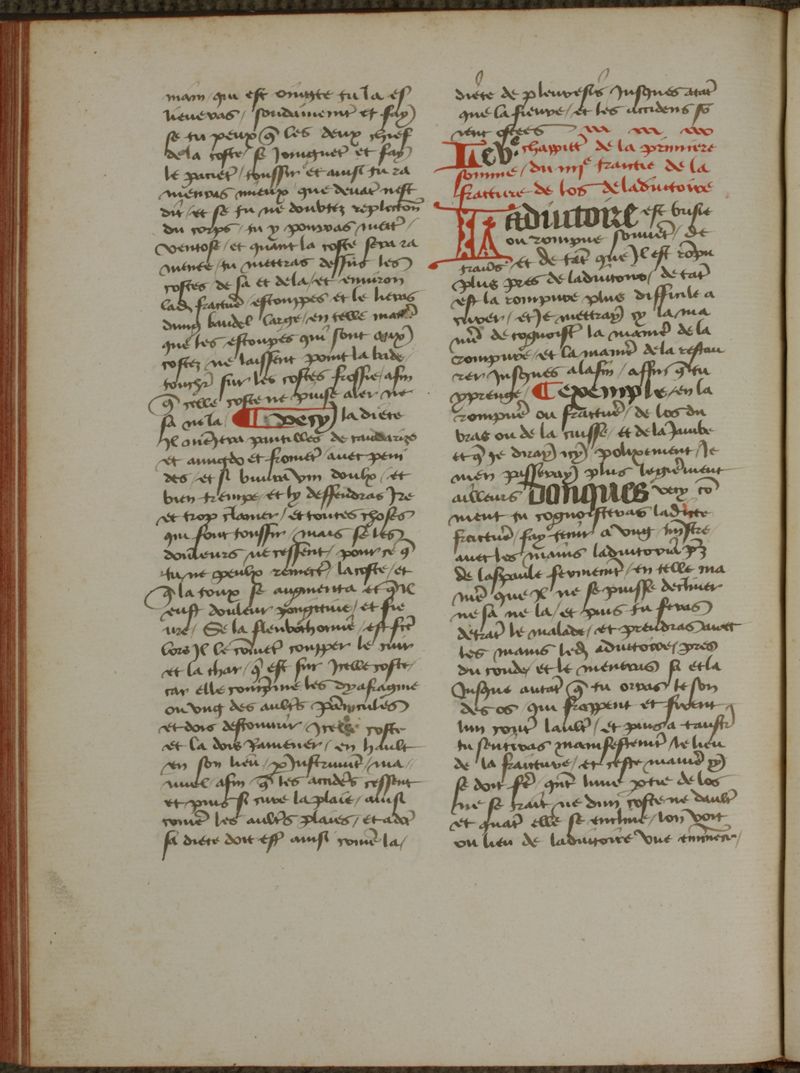 main qui est oingte tu la es
lieveras / soudainemt et fay
se tu peux q les deux chief
de la coste se joingnet et fay
le pacient / toussir et ainsi tu ra
menras mieux que devat nest
dit / et se tu ne doubtez replection
du corps / tu y pourras mect
ventose / et quant la coste sera ra
menee / tu mettras dessus les
costes de sa et de la / et environ
lad fracture estouppes et le lieras
dung bandel large / en telle mate
que les estoupes qui sont aux
costez ne laissent point la bade
touchr sur les costes / affin
q celle coste ne puise aler ne
sa ne la / ¶ Vecy la diete
et
et si vin doulx / et
bien trempe et ly deffendras ire
et trop clamer / et toutes choses
qui font toussir / mais se les
douleurs ne cessent / pour ce q
tu ne peulx remect la coste / et
q la toux se augmenta et q il
eust douleur pongitive / et fie
vre / Se la fleubothomie / est fce
lors il le covict coupper le cuir
et la char / q est sur icelle coste /
car elle comprime les dyafragme
ou ung des aults panicules
et dois descouvrir icelle coste
et la dois ramener / en hault
en son lieu / p instrumt / ma /
nuel / afin q les accides cessent
et puis si cure la plaie / ainsi
come les aults plaies / et adoc
sa diete doit est ainsi come la /
diete de pleuresis jusques atat
que la fievre / et les accidens so
ient ostees
Le ve chappitr de la premiere
somme / du iiie traictie de la
fracture de los de laduitoire
La aduitoire est brisie
ou rompue souvet / de
travs / et de tat que il est ropu
plus pres de laduitoire / de tat
est la rompure plus difficile a
curer / et je mettray cy la ma
nie de cognoist la manie de la
rompure / et la manie de la restau
rer jusques a la fin / affin q tu
pprenge / ¶ exemple / en la
rompure ou fracture / de los du
bras ou de la cuisse / et de la jambe
et q je diray icy / poluxement / je
men passeray plus legierment
ailleurs Donques vecy co
ment tu cognoisteras ladicte
fracture / fay tenir a ung ministre
avec les mains laduitoire pz
de lespaule fermemt / en telle ma
nie que il ne se puisse decliner
ne sa ne la / et puis tu seras
detrat le malade / et prendras avec
les mains led aduitoire / pres
du coude / et le menras si et la
jusque autat q tu orras le son
des os qui frappent et fierent
lun cotre laultr / et puis a taustr
tu sentiras manifestemt / le lieu
de la fracture / et ceste manie
se doit fe / qnt lune ptie de los
ne se trait ne dun coste ne daultr
et quat elle se encline / lon voit
ou lieu de laduitoire une eminece /